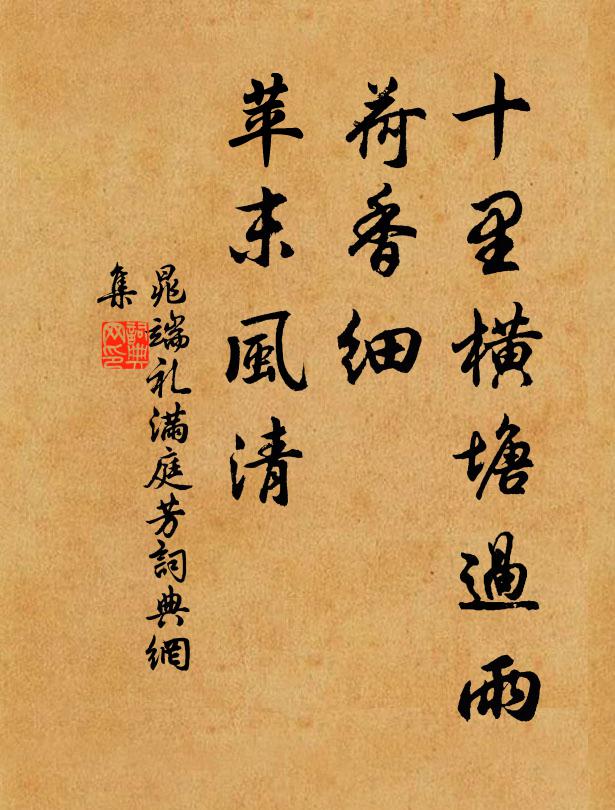 十里橫塘過雨
荷香細
苹末風清
晁端礼滿庭芳詞典網
集
詞典
网印